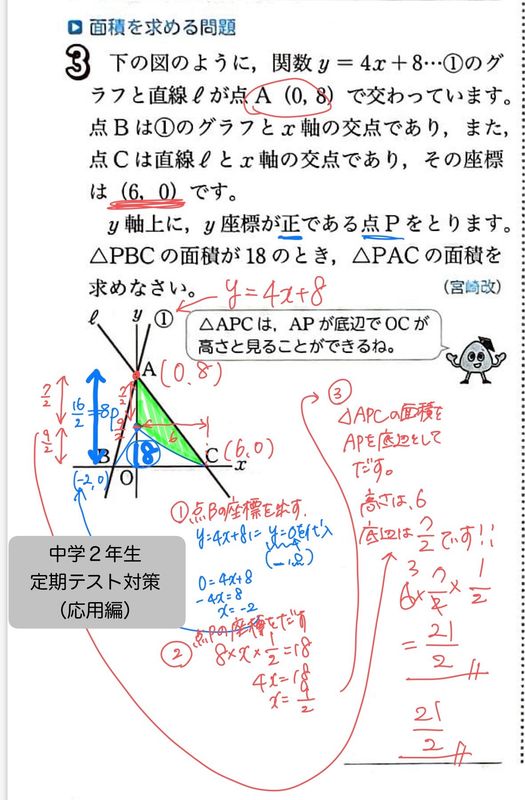 面積を求める問題
3 下の図のように，関数 y＝4x＋8…①のグ
ラフと直線ℓが点A（0, 8）で交わっています。
点Bは①のグラフとx軸の交点であり，また，
点Cは直線ℓとx軸の交点であり，その座標
は（6，0）です。
y軸上に，y座標が正である点Pをとります。
△PBCの面積が18のとき，△PACの面積を
求めなさい。
（宮崎改）
y=4x+8
△APCは，APが底辺でOCが
高さと見ることができるね。
ℓ y ①
A (0,8)
7/2
16/2=8
P
9/2
7/2
9/2
6
18
B
(-2,0)
O
C (6,0)
x
①点Bの座標を出す。
y=4x+8に y=0を代入
0=4x+8
-4x=8
x=-2
②点Pの座標をだす
8×x×1/2=18
4x=18
x=9/2
③
△APCの面積を
APを底辺として
だす。
高さは、6
底辺は7/2です!!
3
6×7/2×1/2
=21/2
21/2
中学２年生
定期テスト対策
（応用編）